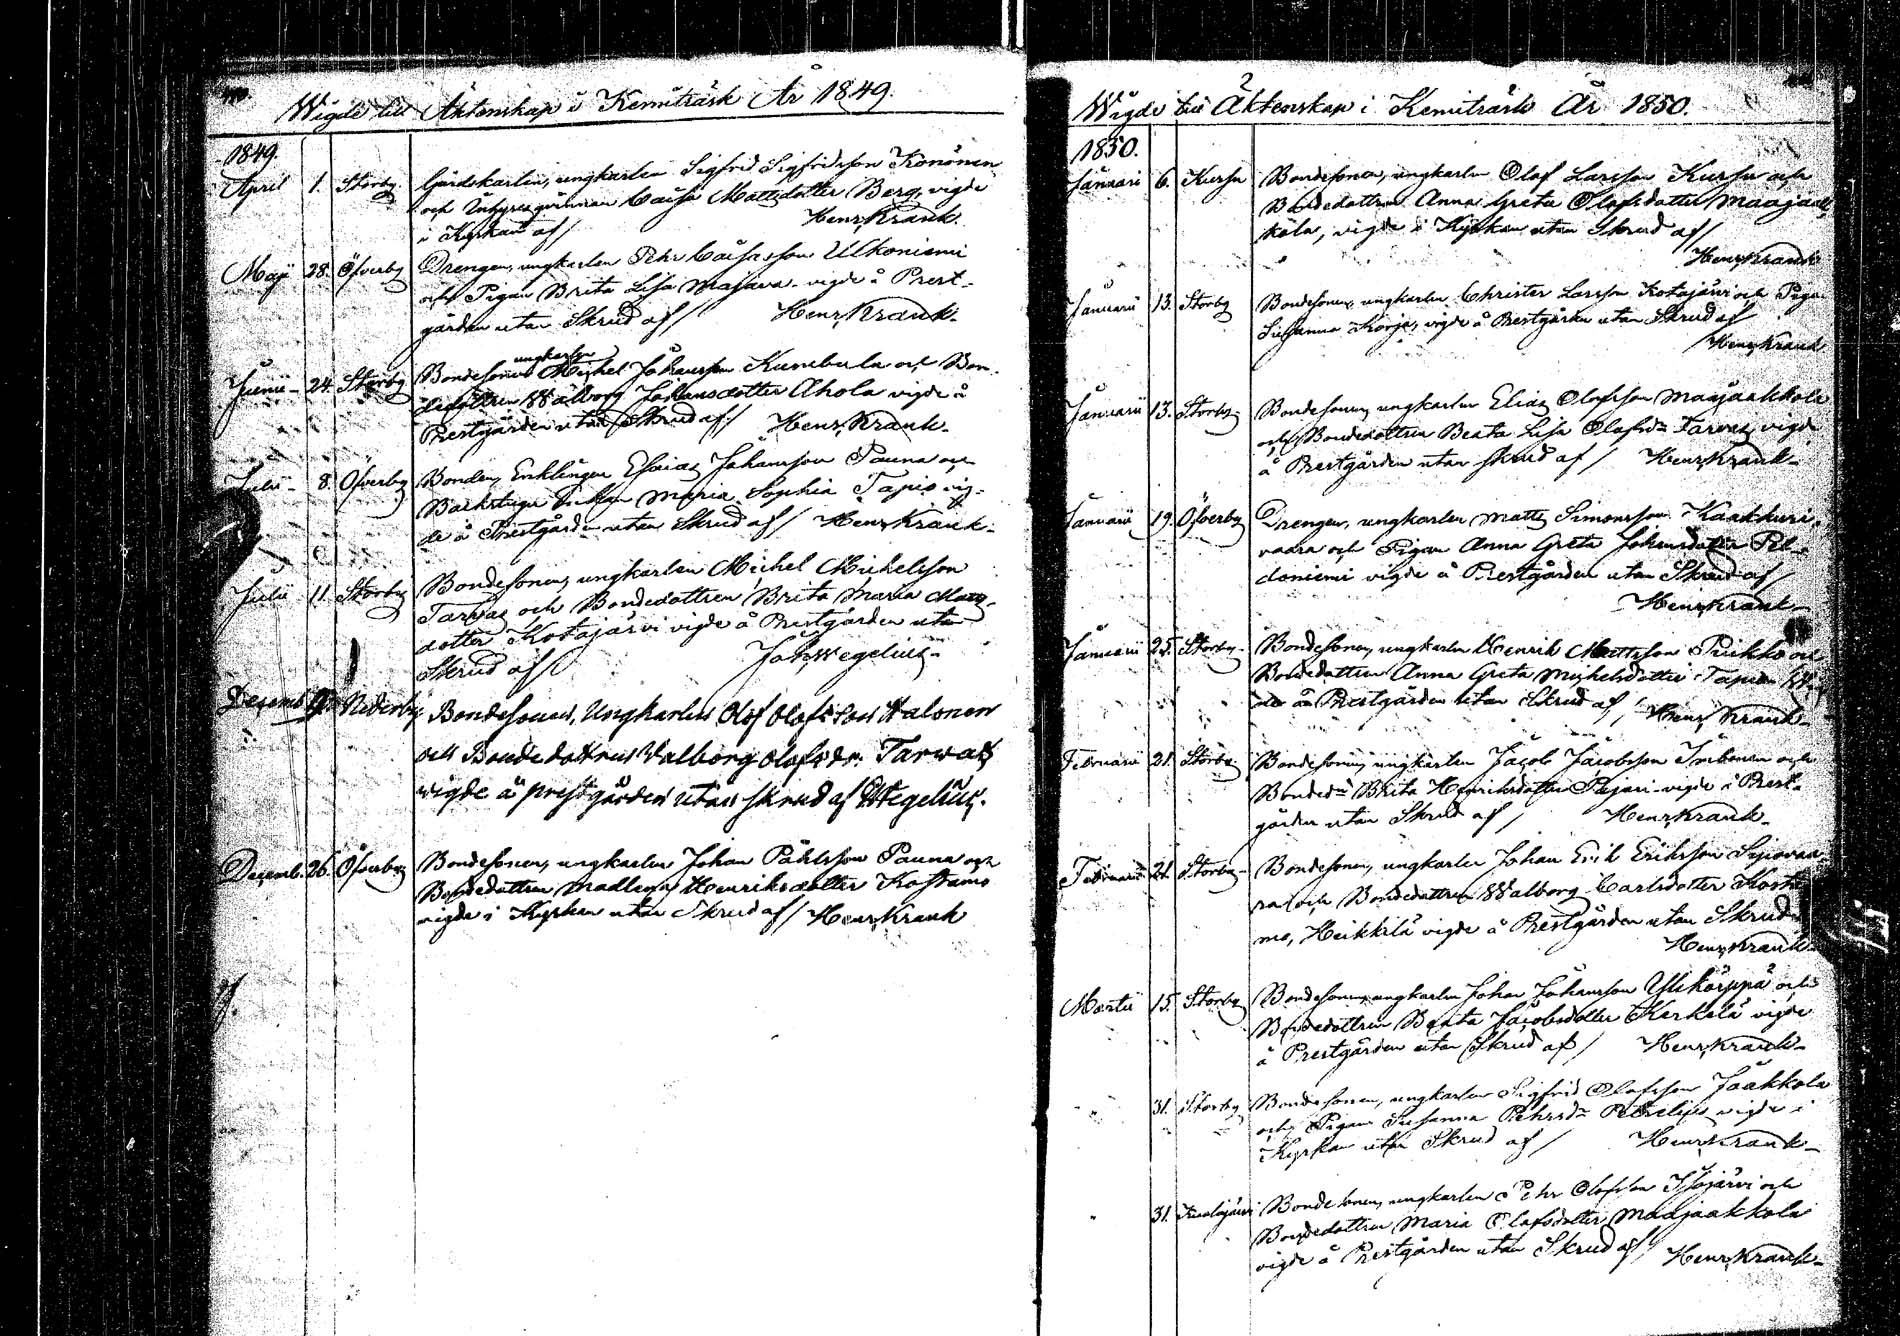 Wigde till Äktenskap i Kemiträsk År 1849.
1849.
April 1. Storby Gårdskarlen, ungkarlen Sigfrid Sigfridsson Kononen
och Inhyres qvinnan Caisa Mattsdotter Berg, vigde
i Kyrkan af/ Henr. Krank.
Maji 28. Öfverby Drengen, ungkarlen Pehr Caisasson Ulkoniemi
och Pigan Brita Lisa Majava. vigde å Prest-
gården utan Skrud af/ Henr. Krank.
Junii 24 Storby Bondesonen ungkarlen Michel Johansson Kumbula och Bon-
dedottren Walborg Johansdotter Ahola vigde å
Prestgården utan Skrud af/ Henr. Krank.
Julii 8 Öfverby Bonden, Enklingen Esaias Johansson Pauna och
Backstugu Enkan Maria Sophia Tapio vig-
de å Prestgården utan Skrud af/ Henr. Krank.
Julii 11. Storby Bondesonen, ungkarlen Michel Michelsson
Tarvas och Bondedottren Brita Maria Matts-
dotter Kotajärvi vigde å Prestgården utan
Skrud af Joh. Wegelius.
Decemb. Nederby Bondesonen, Ungkarlen Olof Olofsson Halonen
och Bondedottren Walborg Olofsdr. Tarwas
wigde å prestgården utan skrud af Wegelius.
Decemb. 26. Öfverby Bondesonen, ungkarlen Johan Påhlsson Pauna och
Bondedottren Madlena Henriksdotter Kostamo
vigde i Kyrkan utan Skrud af/ Henr. Krank
Wigde till Äktenskap i Kemiträsk År 1850.
1850.
Januari 6. Kursu Bondesonen, ungkarlen Olof Larsson Kursu och
Bondedottren Anna Greta Olofsdotter Maajaak-
kola, vigde i Kyrkan utan Skrud af/
Henr. Krank
Januarii 13. Storby Bondesonen, ungkarlen Christer Larsson Kotajärvi och Pigan
Susanna Korja, vigde å Prestgården utan Skrud af
/Henr. Krank
Januarii 13. Storby Bondesonen, ungkarlen Elias Olofsson Maajaakkola
och Bondedottren Beata Lisa Olofsdr Tarvas, vigde
å Prestgården utan skrud af/ Henr. Krank
Januarii 19. Öfverby Drengen, ungkarlen Matts Simonsson Kaakkuri-
vaara och Pigan Anna Greta Johansdotter Pel-
doniemi vigde å Prestgården utan Skrud af/
Henr. Krank
Januarii 25. Storby Bondesonen, ungkarlen Henrik Mattsson Pirkko och
Bondedottren Anna Greta Michelsdotter Tapio
de å Prestgården utan Skrud af/ Henr. Krank
Februarii 21. Storby Bondesonen, ungkarlen Jacob Jacobsson och
Bondedr Brita Henriksdotter Pajari vigde i Prest-
gården utan Skrud af/ Henr. Krank
Februarii 21. Storby Bondesonen, ungkarlen Johan Erik Eriksson
ra och Bondedottren Walborg Carlsdotter Kosta-
mo, Heikkilä vigde å Prestgården utan Skrud
Henr. Krank
Martii 15. Storby Bondesonen, ungkarlen Johan Johansson Ylikärppä och
Bondedottren Beata Jacobsdotter Kerkelä vigde
å Prestgården utan Skrud af/ Henr. Krank
" 31. Storby Bondesonen, ungkarlen Sigfrid Olofsson Jaakkola
och Pigan Susanna Pehrsdr vigde i
Kyrkan utan Skrud af/ Henr. Krank
" 31. Kuolajärvi Bondesonen, ungkarlen Pehr Olofsson Isojärvi och
Bondedottren Maria Olofsdotter Maajaakkola
vigde å Prestgården utan Skrud af/ Henr. Krank